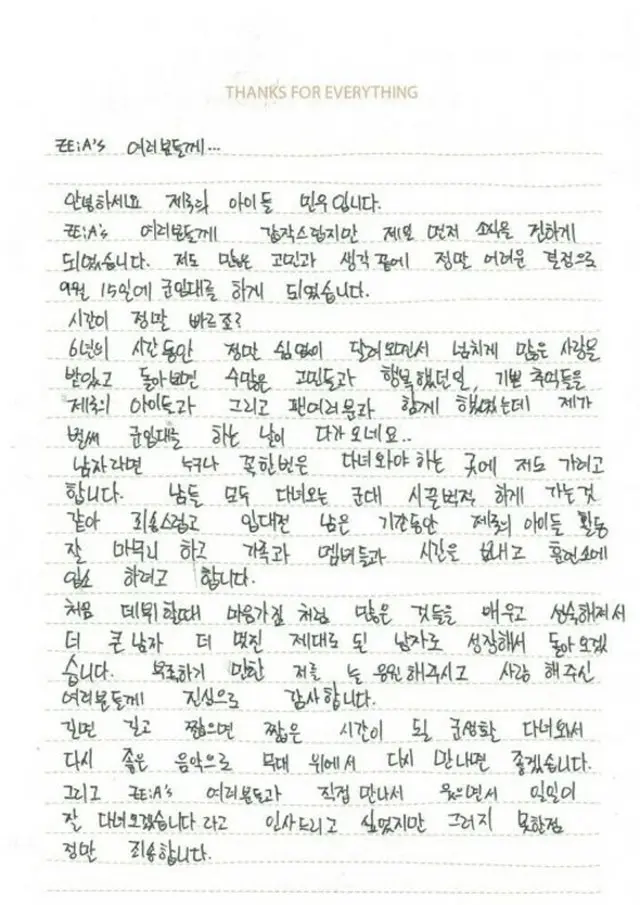 THANKS FOR EVERYTHING
ZE:A's 여러분들께...
안녕하세요 제국의 아이들 민우입니다.
ZE:A's 여러분들께 갑작스럽지만 제일 먼저 소식을 전하게
되었습니다. 저도 많은 고민과 생각 끝에 정말 어려운 결정으로
9월 15일에 군입대를 하게 되었습니다.
시간이 정말 빠르죠?
6년의 시간동안 정말 쉼없이 달려오면서 넘치게 많은 사랑을
받았고 돌아보면 수많은 고민들과 행복했던일, 기쁜 추억들을
제국의 아이들과 그리고 팬여러분과 함께 했었는데 제가
벌써 군입대를 하는 날이 다가오네요..
남자라면 누구나 꼭한번은 다녀와야 하는 곳에 저도 가려고
합니다. 남들 모두 다녀오는 군대 시끌벅적 하게 가는것
같아 죄송스럽고 입대전 남은 기간동안 제국의 아이들 활동
잘 마무리 하고 가족과 멤버들과 시간을 보내고 훈련소에
입소 하려고 합니다.
처음 데뷔할때 마음가짐 처럼 많은 것들을 배우고 성숙해져서
더 큰남자 더 멋진 제대로 된 남자로 성장해서 돌아오겠
습니다. 부족하기 만한 저를 늘 응원해주시고 사랑 해주신
여러분들께 진심으로 감사합니다.
길면 길고 짧으면 짧은 시간이 될 군생활 다녀와서
다시 좋은 음악으로 무대 위에서 다시 만나면 좋겠습니다.
그리고 ZE:A's 여러분들과 직접 만나서 웃으면서 일일이
잘 다녀오겠습니다 라고 인사드리고 싶었지만 그러지 못한점
정말 죄송합니다.